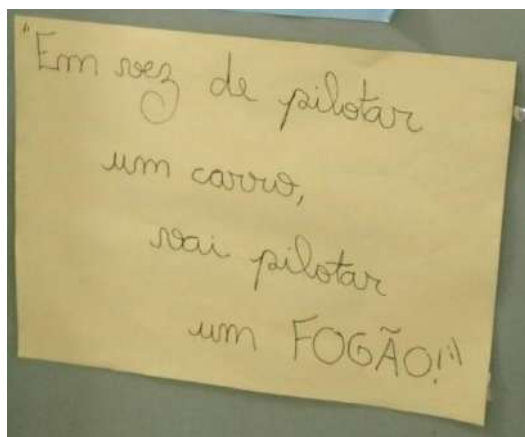 "Em vez de pilotar
um carro,
vai pilotar
um FOGÃO!"